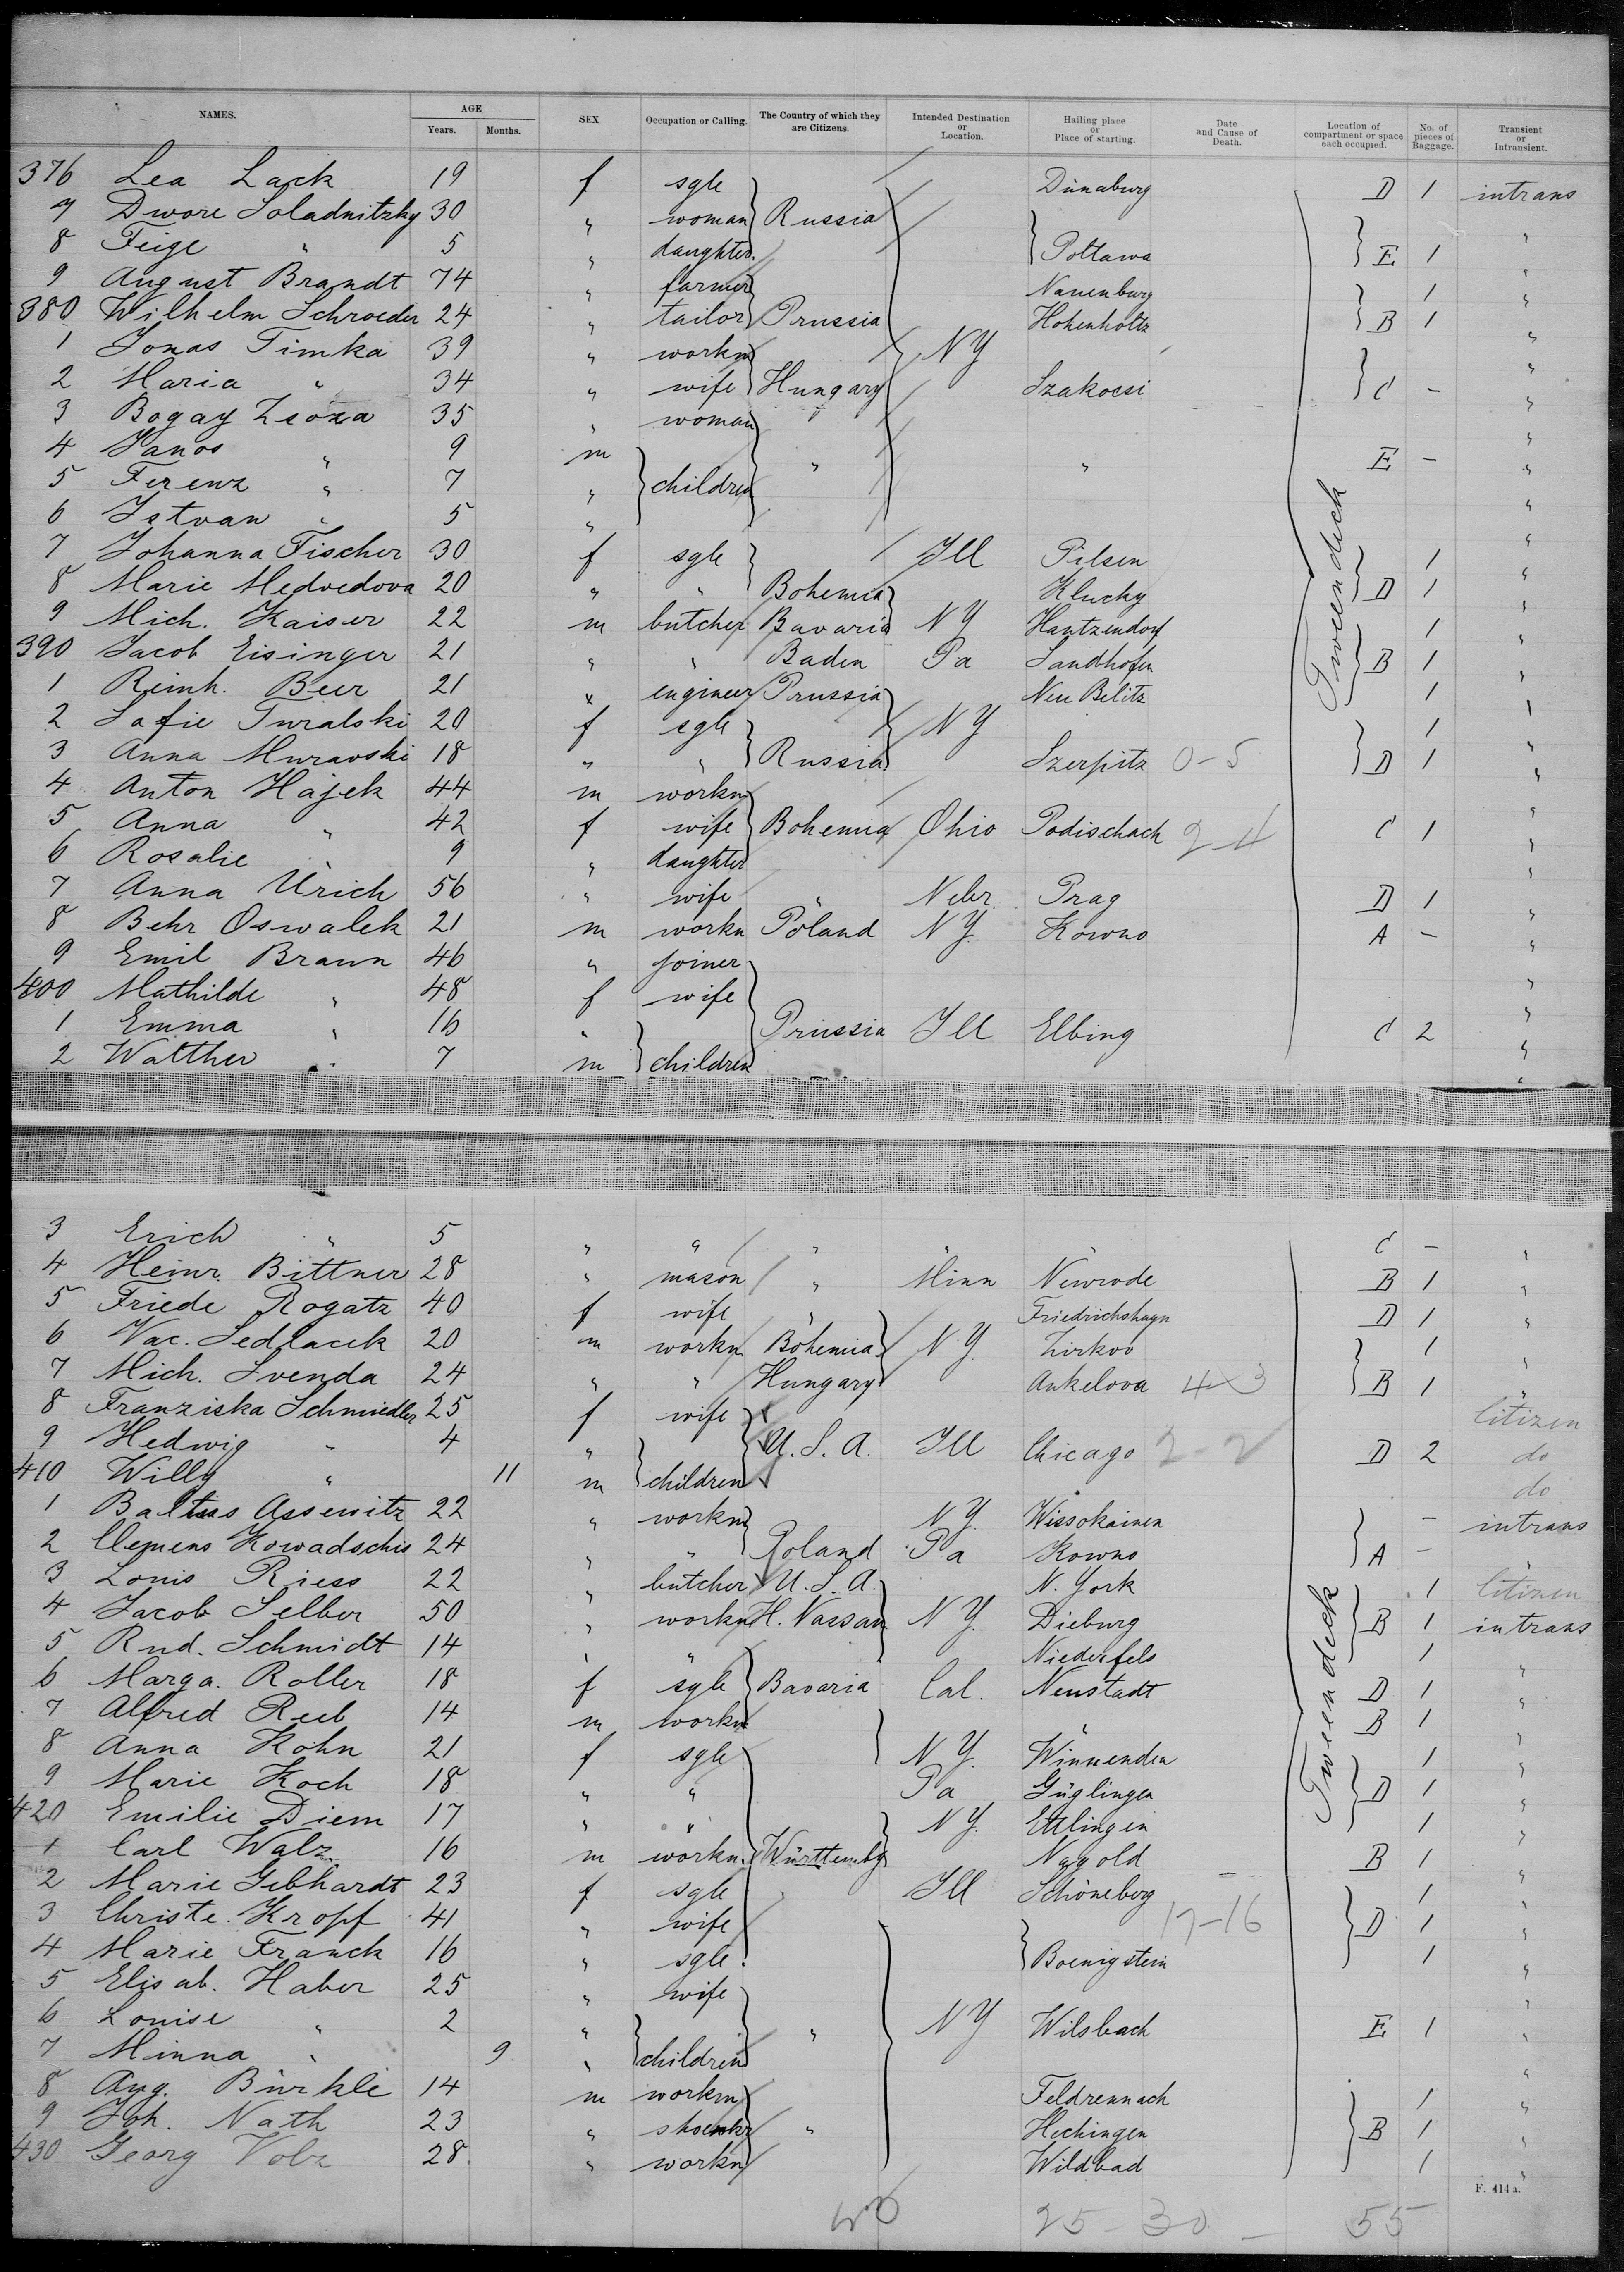 NAMES. AGE Years. Months. SEX Occupation or Calling. The Country of which they are Citizens. Intended Destination or Location. Hailing place or Place of starting. Date and Cause of Death. Location of compartment or space each occupied. No. of pieces of Baggage. Transient or Intransient.
376 Lea Lack 19 f sgle Dünaburg D 1 intrans
7 Dwore Soladnitzky 30 " woman Russia "
8 Feige " 5 " daughter Poltawa E 1 "
9 August Brandt 74 " farmer Nauenburg 1 "
380 Wilhelm Schroeder 24 " tailor Prussia Hohenholtz B 1 "
1 Jonas Timka 39 " workm NY "
2 Maria " 34 " wife Hungary Szakocsi C - "
3 Bogay Zsoza 35 " woman "
4 Janos " 9 m " " E - "
5 Ferenz " 7 " children "
6 Istvan " 5 " "
7 Johanna Fischer 30 f sgle Ill Pilsen 1 "
8 Marie Medvedova 20 " " Bohemia Klucky D 1 "
9 Mich. Kaiser 22 m butcher Bavaria NY Hantzendorf 1 "
390 Jacob Eisinger 21 " " Baden Pa Sandhofen B 1 "
1 Reinh. Beer 21 " engineer Prussia Neu Belitz 1 "
2 Sofie Turalski 20 f sgle NY 1 "
3 Anna Muravski 18 " " Russia Szerpitz 0-5 D 1 "
4 Anton Hajek 44 m workm "
5 Anna " 42 f wife Bohemia Ohio Podischach 2-4 C 1 "
6 Rosalie " 9 " daughter "
7 Anna Urich 56 " wife " Nebr Prag D 1 "
8 Behr Oswalek 21 m workm Poland NY. Kowno A - "
9 Emil Braun 46 " joiner "
400 Mathilde " 48 f wife "
1 Emma " 16 " Prussia Ill Elbing C 2 "
2 Walther " 7 m children "
Tweendeck
3 Erich " 5 " " " " " C - "
4 Heinr. Bittner 28 " mason " Minn Neurode B 1 "
5 Friede Rogatz 40 f wife " Friedrichshagn D 1 "
6 Vac. Sedlacek 20 m workm Bohemia NY. Zirkov 1 "
7 Mich. Svenda 24 " " Hungary Ankelova 4-3 B 1 "
8 Franziska Schmiedler 25 f wife Citizen
9 Hedwig " 4 " U.S.A. Ill Chicago 2-2 D 2 do
410 Willy " 11 m children do
1 Baltus Assewitz 22 " workm NY. Wissokainen - intrans
2 Clemens Kowadschis 24 " " Poland Pa Kowno A - "
3 Louis Riess 22 " butcher U.S.A. N. York 1 Citizen
4 Jacob Selber 50 " workm H. Nassau NY. Dieburg B 1 intrans
5 Rud. Schmidt 14 " " Niederfels 1 "
6 Marga. Roller 18 f sgle Bavaria Cal. Neustadt D 1 "
7 Alfred Reeb 14 m workm " B 1 "
8 Anna Kohn 21 f sgle NY. Winnenden 1 "
9 Marie Koch 18 " " Pa Güglingen D 1 "
420 Emilie Diem 17 " " NY. Ettlingen 1 "
1 Carl Walz 16 m workm. Württembg Nagold B 1 "
2 Marie Gebhardt 23 f sgle Ill Schöneberg 1 "
3 Christe. Kropf 41 " wife 17-16 D 1 "
4 Marie Franck 16 " sgle. Boenigstein 1 "
5 Elisab. Haber 25 " wife "
6 Louise " 2 " " NY Wilsbach E 1 "
7 Minna " 9 " children "
8 Aug. Bürkle 14 m workm Feldrennach 1 "
9 Joh. Nath 23 " shoemkr " Hechingen B 1 "
430 Georg Volz 28. " workm Wildbad 1 "
Tweendeck
F. 414a.
25 - 30 - 55